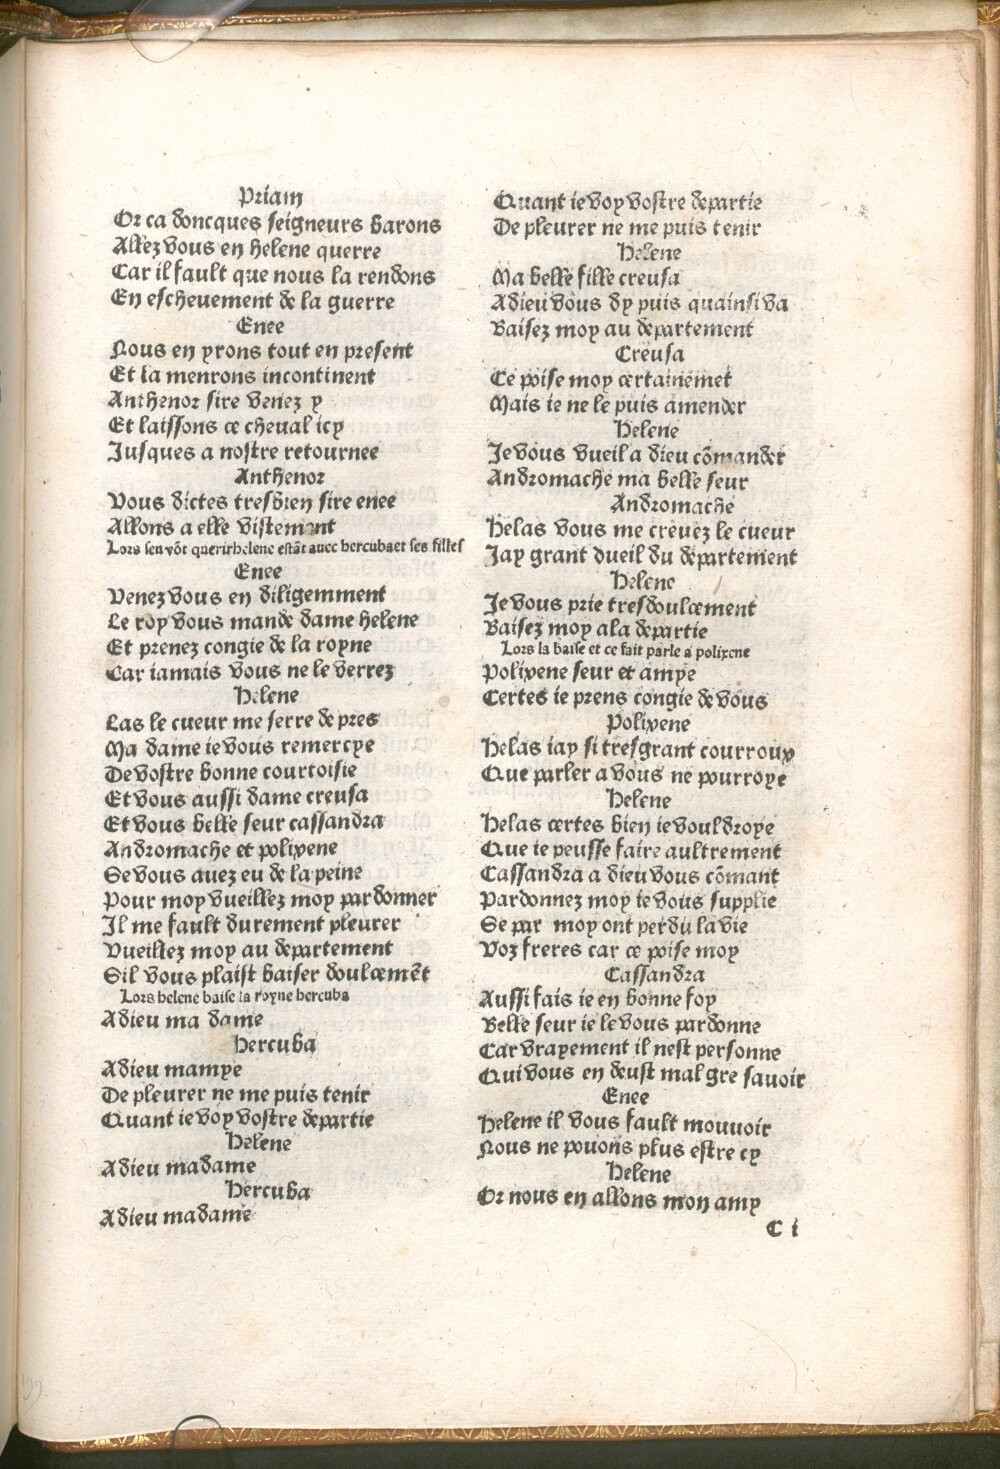 Priam
Or ca doncques seigneurs barons
Allez vous en helene querre
Car il fault que nous la rendons
En eschevement de la guerre
Enee
Nous en yrons tout en present
Et la menrons incontinent
Anthenor sire venez y
Et laissons ce cheval icy
Jusques a nostre retournee
Anthenor
Vous dictes tresbien sire enee
Allons a elle vistement
Lors sen võt querir helene estãt auec hercuba et ses filles
Enee
Venez vous en diligemment
Le roy vous mande dame helene
Et prenez congie de la royne
Car iamais vous ne le verrez
Helene
Las le cueur me serre de pres
Ma dame ie vous remercye
De vostre bonne courtoisie
Et vous aussi dame creusa
Et vous belle seur cassandra
Andromache et polixene
Se vous auez eu de la peine
Pour moy vueillez moy pardonner
Il me fault durement pleurer
Vueillez moy au departement
Sil vous plaist baiser doulcemẽt
Lors helene baise la royne hercuba
Adieu ma dame
Hercuba
Adieu mamye
De pleurer ne me puis tenir
Quant ie voy vostre departie
Helene
Adieu madame
Hercuba
Adieu madame
Quant ie voy vostre departie
De pleurer ne me puis tenir
Helene
Ma belle fille creusa
Adieu vous dy puis quainsi va
Baisez moy au departement
Creusa
Ce poise moy certainemet
Mais ie ne le puis amender
Helene
Je vous vueil a dieu cõmander
Andromache ma belle seur
Andromache
Helas vous me crevez le cueur
Jay grant dueil du departement
Helene
Je vous prie tresdoulcement
Baisez moy a la departie
Lors la baise et ce fait parle a polixene
Polixene seur et amye
Certes ie prens congie de vous
Polixene
Helas iay si tresgrant courroux
Que parler a vous ne pourroye
Helene
Helas certes bien ie vouldroye
Que ie peusse faire aultrement
Cassandra a dieu vous cõmant
Pardonnez moy ie vous supplie
Se par moy ont perdu la vie
Voz freres car ce poise moy
Cassandra
Aussi fais ie en bonne foy
Belle seur ie le vous pardonne
Car vrayement il nest personne
Qui vous en deust mal gre savoir
Enee
Helene il vous fault mouuoir
Nous ne pouons plus estre cy
Helene
Or nous en allons mon amy
C i